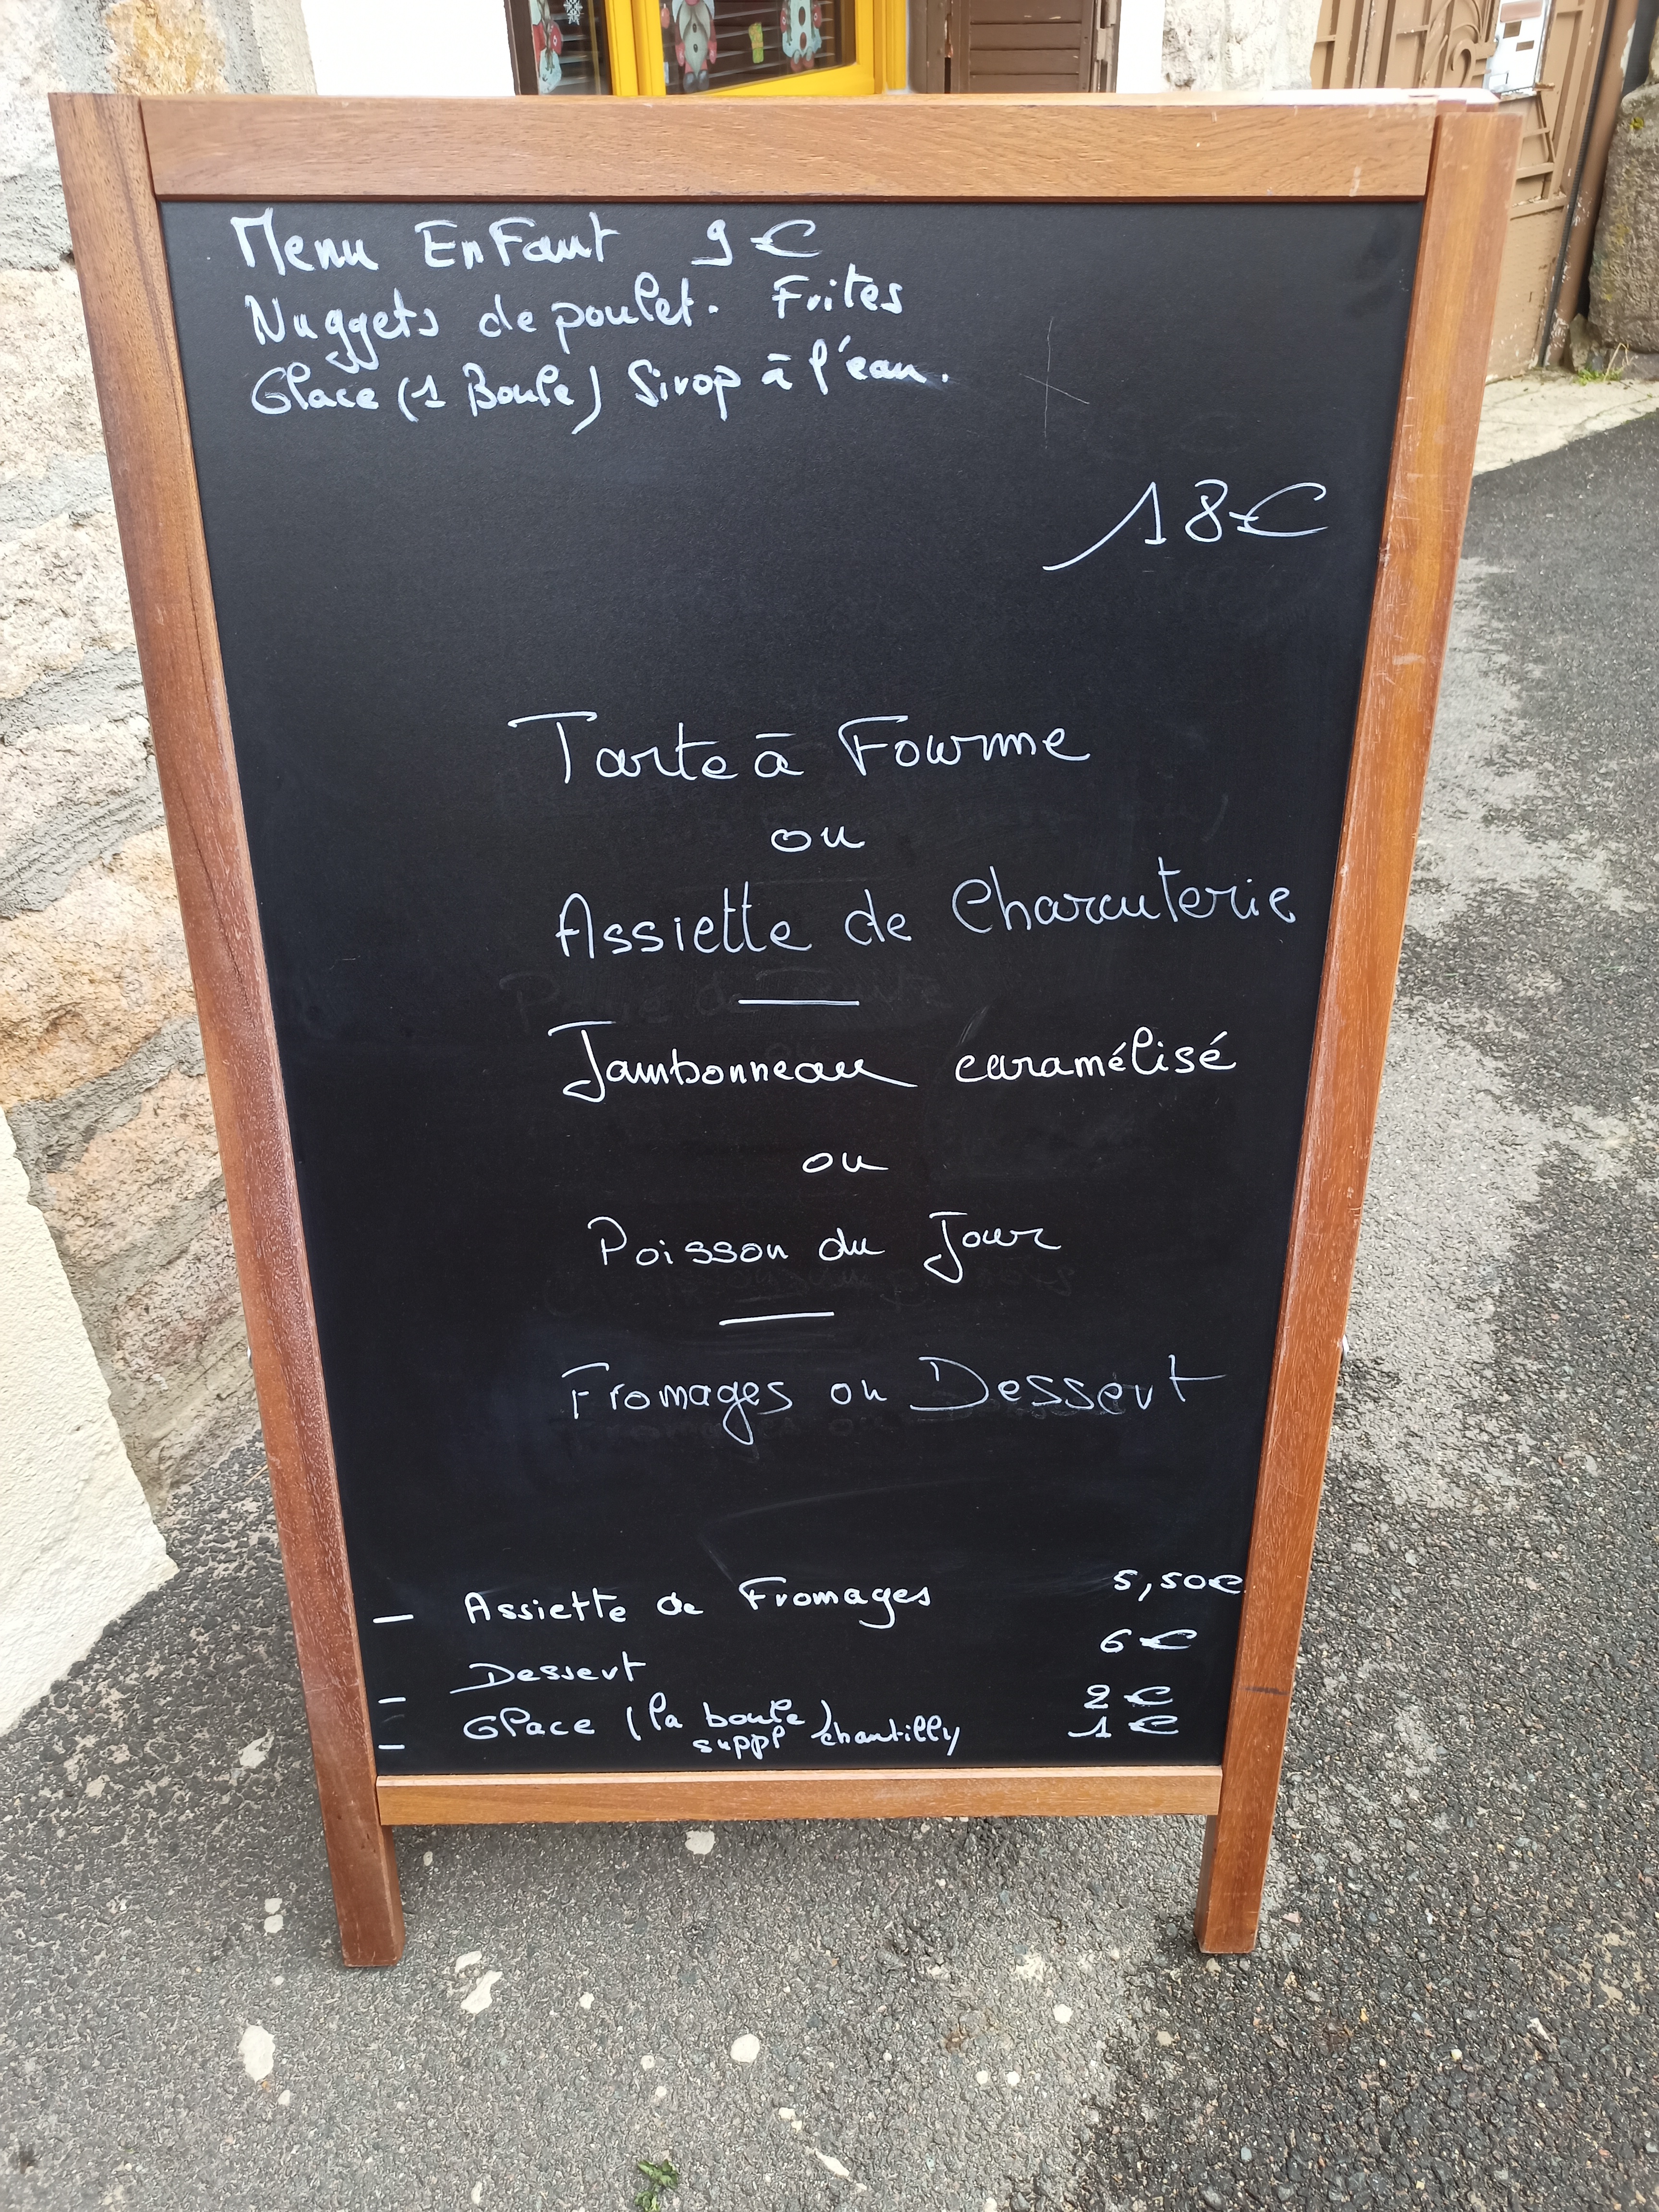 Menu EnFant 9€
Nuggets de poulet. Frites
Glace (1 Boule) Sirop à l'eau.
18€
Tarte à Fourme
ou
Assiette de Charcuterie
Jambonneau caramélisé
ou
Poisson du Jour
Fromages ou Dessert
- Assiette de Fromages 5,50€
Dessert 6€
- Glace (la boule) 2€
- suppl chantilly 1€